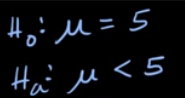 H₀: μ = 5
Hₐ: μ < 5